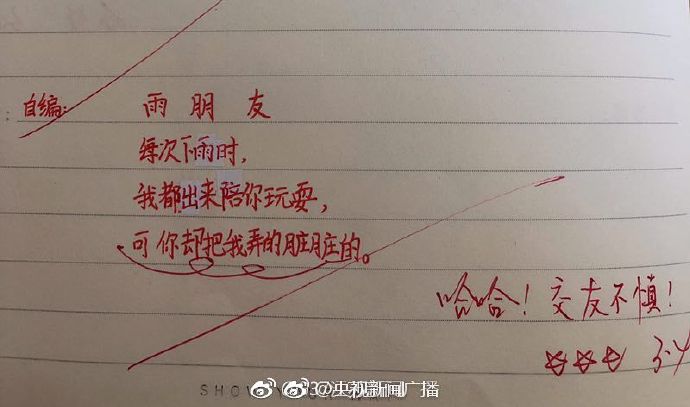 自编: 雨朋友
每次下雨时,
我都出来陪你玩耍,
可你却把我弄的脏脏的。
哈哈!交友不慎!
☆☆☆ 3.4
SHOW
@央视新闻广播